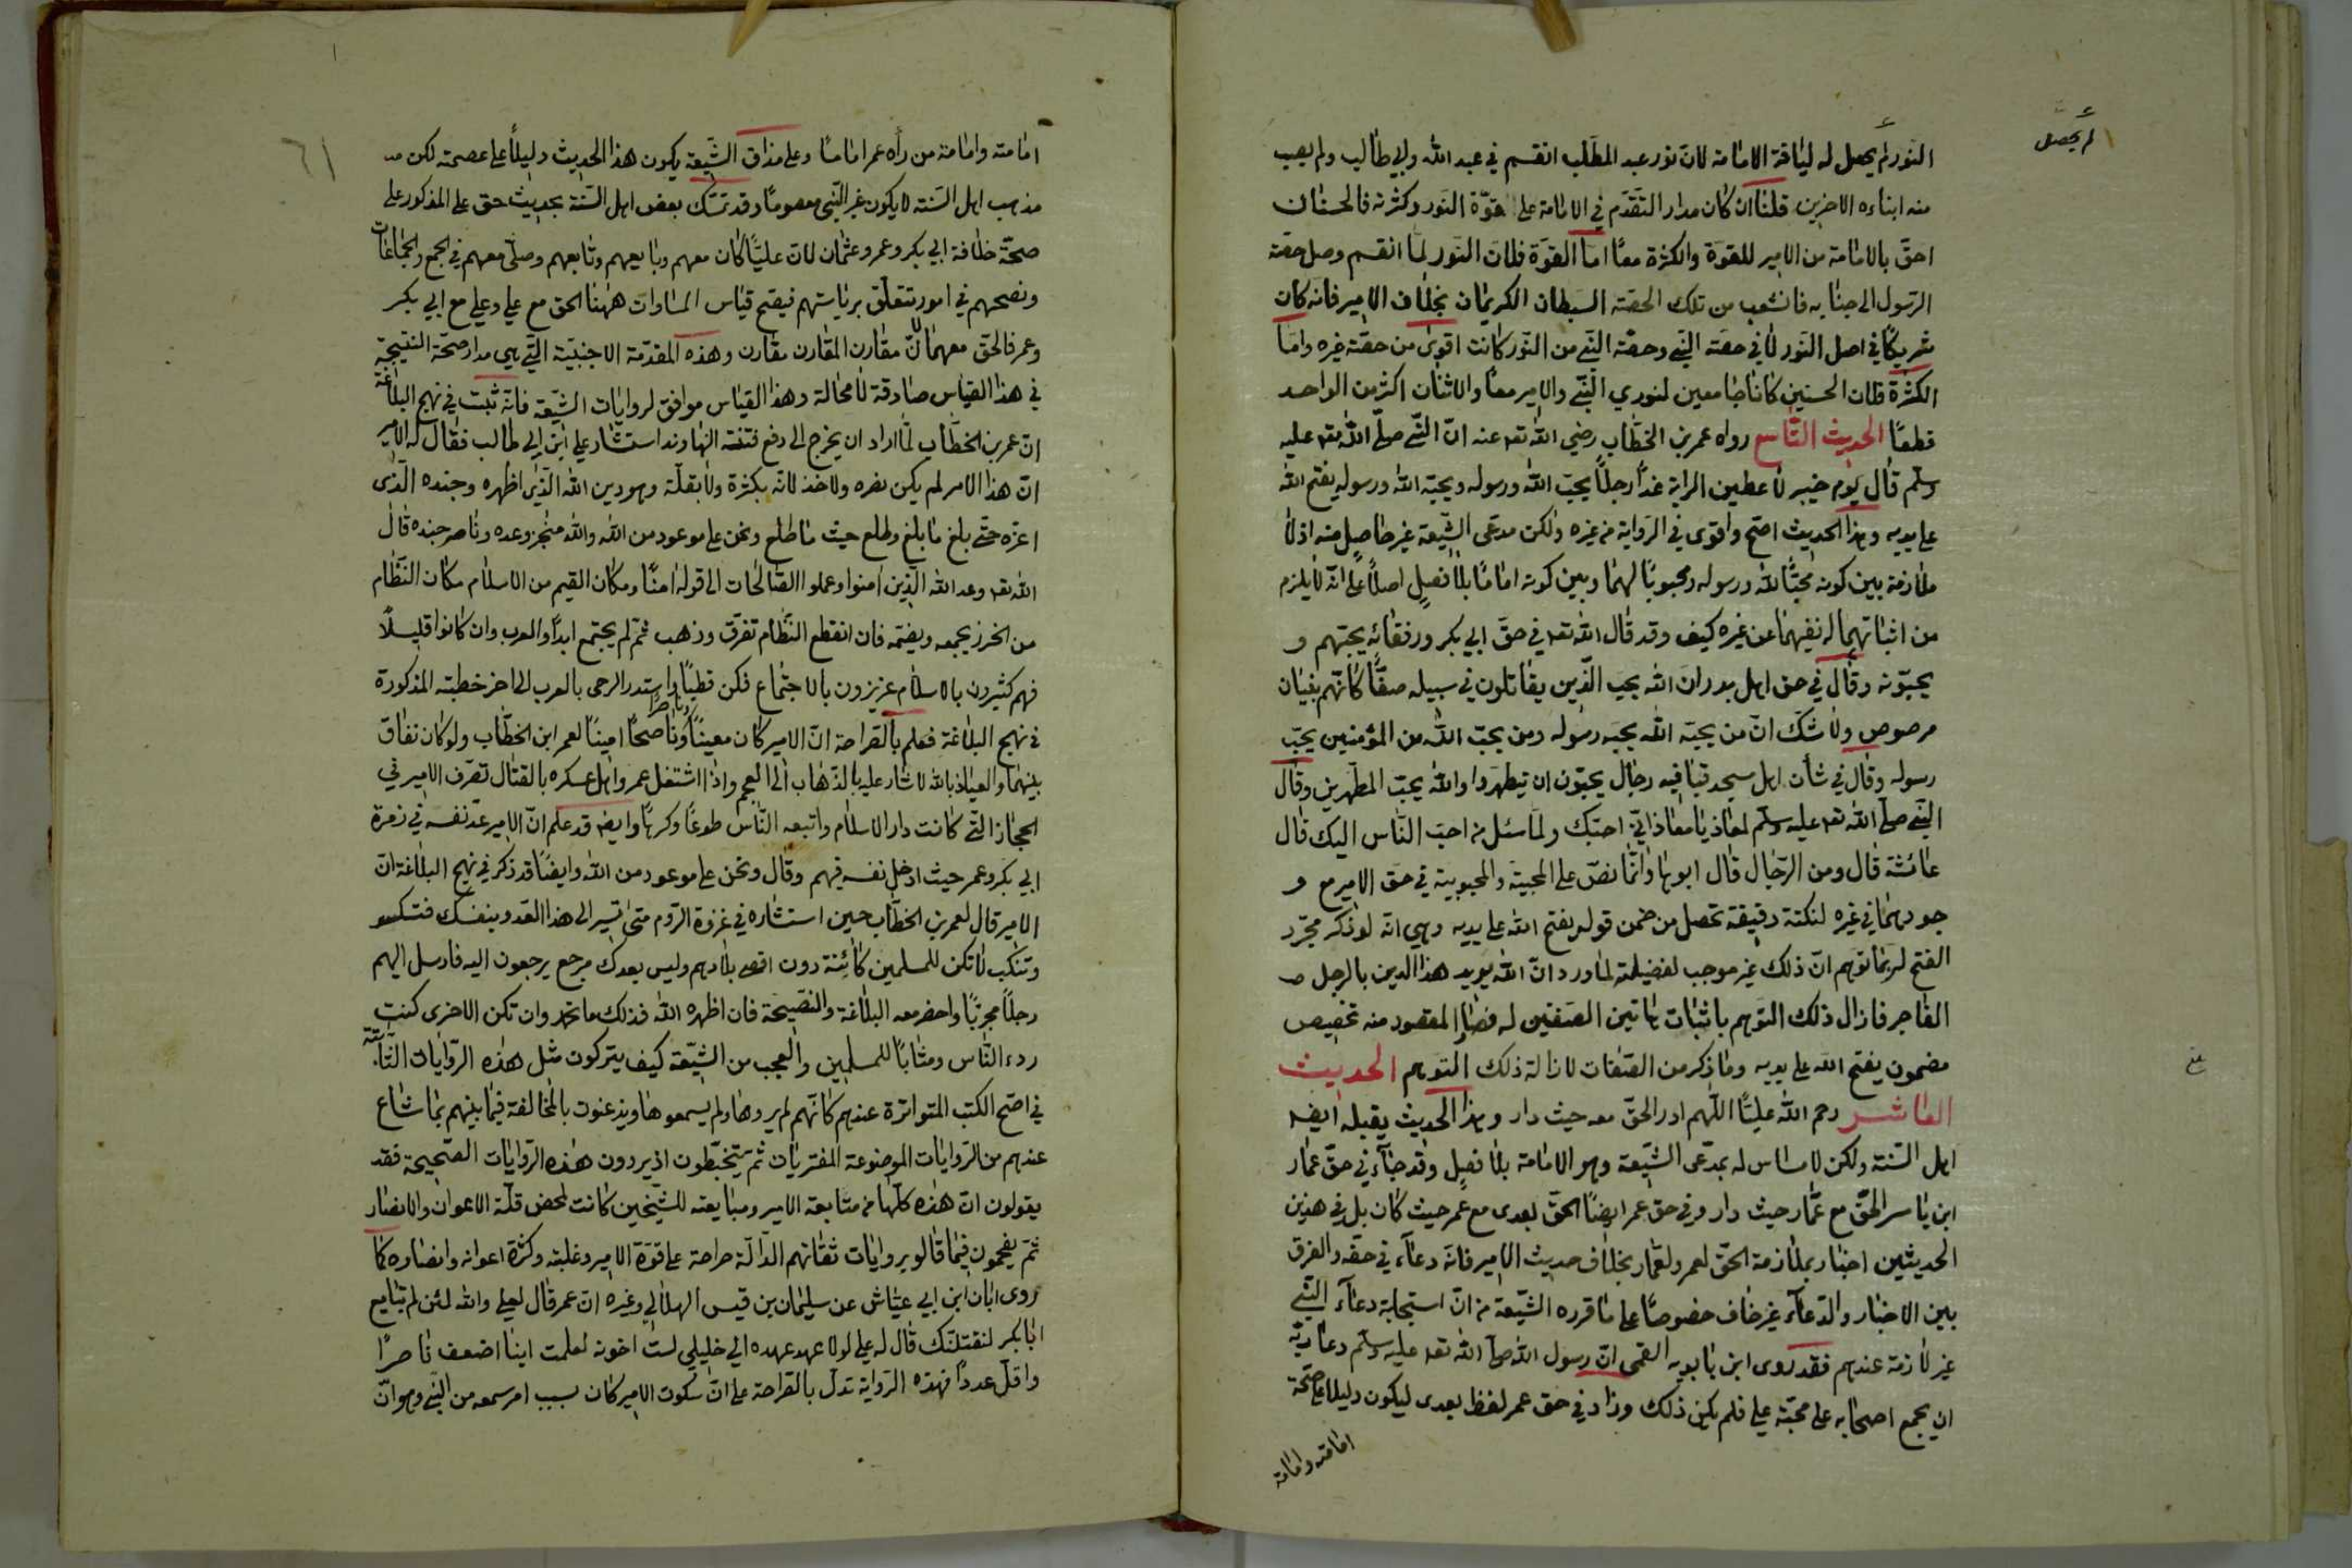 لم يحصل
النور لم يحصل له لياقة الامامة لان نور عبد المطلب انقسم في عبد الله وابي طالب ولم يصب
منه ابناءه الاخرين قلنا ان كان مدار التقدم في الامامة على قوّة النور وكثرته فالحسنان
احق بالامامة من الامير للقوة والكثرة معًا اما القوة فلان النور لمّا انقسم وصل حصّة
الرسول الى جنابه فانشعب من تلك الحصّة السبطان الكريمان بخلاف الامير فانه كان
شريكًا في اصل النور لا في حصّة النبي وحصّة النبي من النور كانت اقوى من حصّة غيره واما
الكثرة فلان الحسنين كانا جامعين لنوري النبي والامير معًا والاثنان اكثر من الواحد
قطعًا الحديث التاسع رواه عمر بن الخطاب رضي الله تع عنه انّ النبي صلّى الله تع عليه
وسلم قال يوم خيبر لاعطين الراية غدًا رجلًا يحبّ الله ورسوله ويحبّه الله ورسوله يفتح الله
على يديه وهذا الحديث اصح واقوى في الرواية من غيره ولكن مدعى الشيعة غير حاصل منه اذ لا
ملازمة بين كونه محبًّا لله ورسوله ومحبوبًا لهما وبين كونه امامًا بلا فصل اصلًا على انه لا يلزم
من اثباتهما له نفيهما عن غيره كيف وقد قال الله تع في حق ابي بكر ورفقائه يحبّهم و
يحبّونه وقال في حق اهل بدر ان الله يحب الذين يقاتلون في سبيله صفًّا كانّهم بنيان
مرصوص ولا شك انّ من يحبّه الله يحبّه رسوله ومن يحبّ الله من المؤمنين يحبّ
رسوله وقال في شان اهل مسجد قبا فيه رجال يحبّون ان يتطهروا والله يحبّ المطّهرين وقال
النبي صلّى الله تع عليه وسلم لمعاذ يا معاذ اني احبّك ولما سئل من احب النّاس اليك قال
عائشة قال ومن الرجال قال ابوها وانّما نصّ على المحبيّة والمحبوبية في حق الامير مع و
جودهما في غيره لنكتة دقيقة تحصل من ضمن قوله يفتح الله على يديه وهي انه لو ذكر مجرّد
الفتح لربّما توهم انّ ذلك غير موجب لفضيلته لما ورد انّ الله يؤيد هذا الدين بالرجل
الفاجر فازال ذلك التوهم باثبات هاتين الصفتين له فصار المقصود منه تخصيص
مضمون يفتح الله على يديه وما ذكر من الصفات لازالة ذلك التوهم الحديث
العاشر رحم الله عليًّا اللّهم ادر الحقّ معه حيث دار وهذا الحديث يقبله ايضه
اهل السنة ولكن لا مساس له بمدّعى الشيعة وهو الامامة بلا فصل وقد جاء في حقّ عمّار
ابن ياسر الحقّ مع عمّار حيث دار وفي حق عمر ايضًا الحقّ بعدى مع عمر حيث كان بل في هذين
الحديثين اخبار بملازمة الحقّ لعمر ولعمّار بخلاف حديث الامير فانّه دعاء في حقّه والفرق
بين الاخبار والدعاء غير خاف خصوصًا على ما قرره الشيعة من انّ استجابة دعاء النبي
غير لازمة عندهم فقد روى ابن بابويه القمى انّ رسول الله صلى الله تع عليه وسلم دعا ربّه
ان يجمع اصحابه على محبّة علي فلم يكن ذلك وزاد في حق عمر لفظ بعدى ليكون دليلا على صحّة
امامته وامامة
٦١
امامته وامامة من رأه عمر امامًا وعلى مذاق الشيعة يكون هذا الحديث دليلًا على عصمته لكن
مذهب اهل السنة لا يكون غير النّبي معصومًا وقد تمسّك بعض اهل السّنة بحديث حق علي المذكور على
صحّة خلافة ابي بكر وعمر وعثمان لان عليًّا كان معهم وبايعهم وتابعهم وصلّى معهم في الجمع والجماعات
ونصحهم في امور تتعلق برياستهم فيصح قياس المساوات ههنا الحق مع علي وعلي مع ابي بكر
وعمر فالحق معهما لانّ مقارن المقارن مقارن وهذه المقدّمة الاجنبيّة التي هي مدار صحّة النتيجة
في هذا القياس صادقة لا محالة وهذا القياس موافق لروايات الشيعة فانّه ثبت في نهج البلاغة
انّ عمر بن الخطاب لمّا اراد ان يخرج الى دفع فتنة النهاوند استشار علي ابن ابي طالب فقال له الامير
انّ هذا الامر لم يكن نصره ولا خذلانه بكثرة ولا بقلّة وهو دين الله الّذي اظهره وجنده الّذى
اعزه حتّى بلغ ما بلغ وطلع حيث ما طلع ونحن على موعود من الله والله منجز وعده وناصر جنده قال
الله تعه وعد الله الّذين امنوا وعملوا الصالحات الى قوله امنًا ومكان القيم من الاسلام مكان النّظام
من الخرز يجمعه ويضمّه فان انقطع النّظام تفرّق وذهب ثمّ لم يجتمع ابدًا والعرب وان كانوا قليلًا
فهم كثيرون بالاسلام عزيزون بالاجتماع فكن قطبًا واستدر الرحى بالعرب الى اخر خطبته المذكورة
في نهج البلاغة فعلم بالصراحة انّ الامير كان معينًا وناصرًا وناصحًا امينًا لعمر ابن الخطّاب ولو كان نفاق
بينهما والعياذ بالله لاشار عليه بالذّهاب الى العجم واذا اشتغل عمر واهل عسكره بالقتال تصرف الامير في
الحجاز التي كانت دار الاسلام واتبعه النّاس طوعًا وكرهًا وايضه قد علم انّ الامير عدّ نفسه في زمرة
ابي بكر وعمر حيث ادخل نفسه فيهم وقال ونحن على موعود من الله وايضًا قد ذكر في نهج البلاغة انّ
الامير قال لعمر بن الخطّاب حين استشاره في غزوة الرّوم متى تسير الى هذا العدو بنفسك فتكسر
وتنكب لا تكن للمسلمين كائنة دون اقصى بلادهم وليس بعدك مرجع يرجعون اليه فارسل اليهم
رجلًا مجربًا واحضر معه البلاغة والنصيحة فان اظهره الله فذلك ما تحب وان تكن الاخرى كنت
ردء النّاس ومثابًا للمسلمين والعجب من الشيعة كيف يتركون مثل هذه الروايات الثّابتة
في اصح الكتب المتواترة عندهم كانّهم لم يروها ولم يسمعوها ويذعنون بالمخالفة فيما بينهم بما شاع
عندهم من الروايات الموضوعة المفتريات ثم يتخبّطون اذ يردون هذه الروايات الصحيحة فقد
يقولون انّ هذه كلّها من متابعة الامير ومبايعته للشيخين كانت لمحض قلّة الاعوان والانصار
ثمّ يفحمون فيما قالو بروايات ثقاتهم الدّالّة صراحة على قوّة الامير وغلبته وكثرة اعوانه وانصاره كما
روى ابان ابن ابي عيّاش عن سليمان بن قيس الهلالي وغيره انّ عمر قال لعلي والله لئن لم تبايع
ابا بكر لنقتلنّك قال له علي لولا عهد عهده الي خليلي لست اخونه لعلمت اينا اضعف ناصرًا
واقلّ عددًا فهذه الرواية تدلّ بالصراحة على انّ سكوت الامير كان بسبب امر سمعه من النّبي وهو انّ